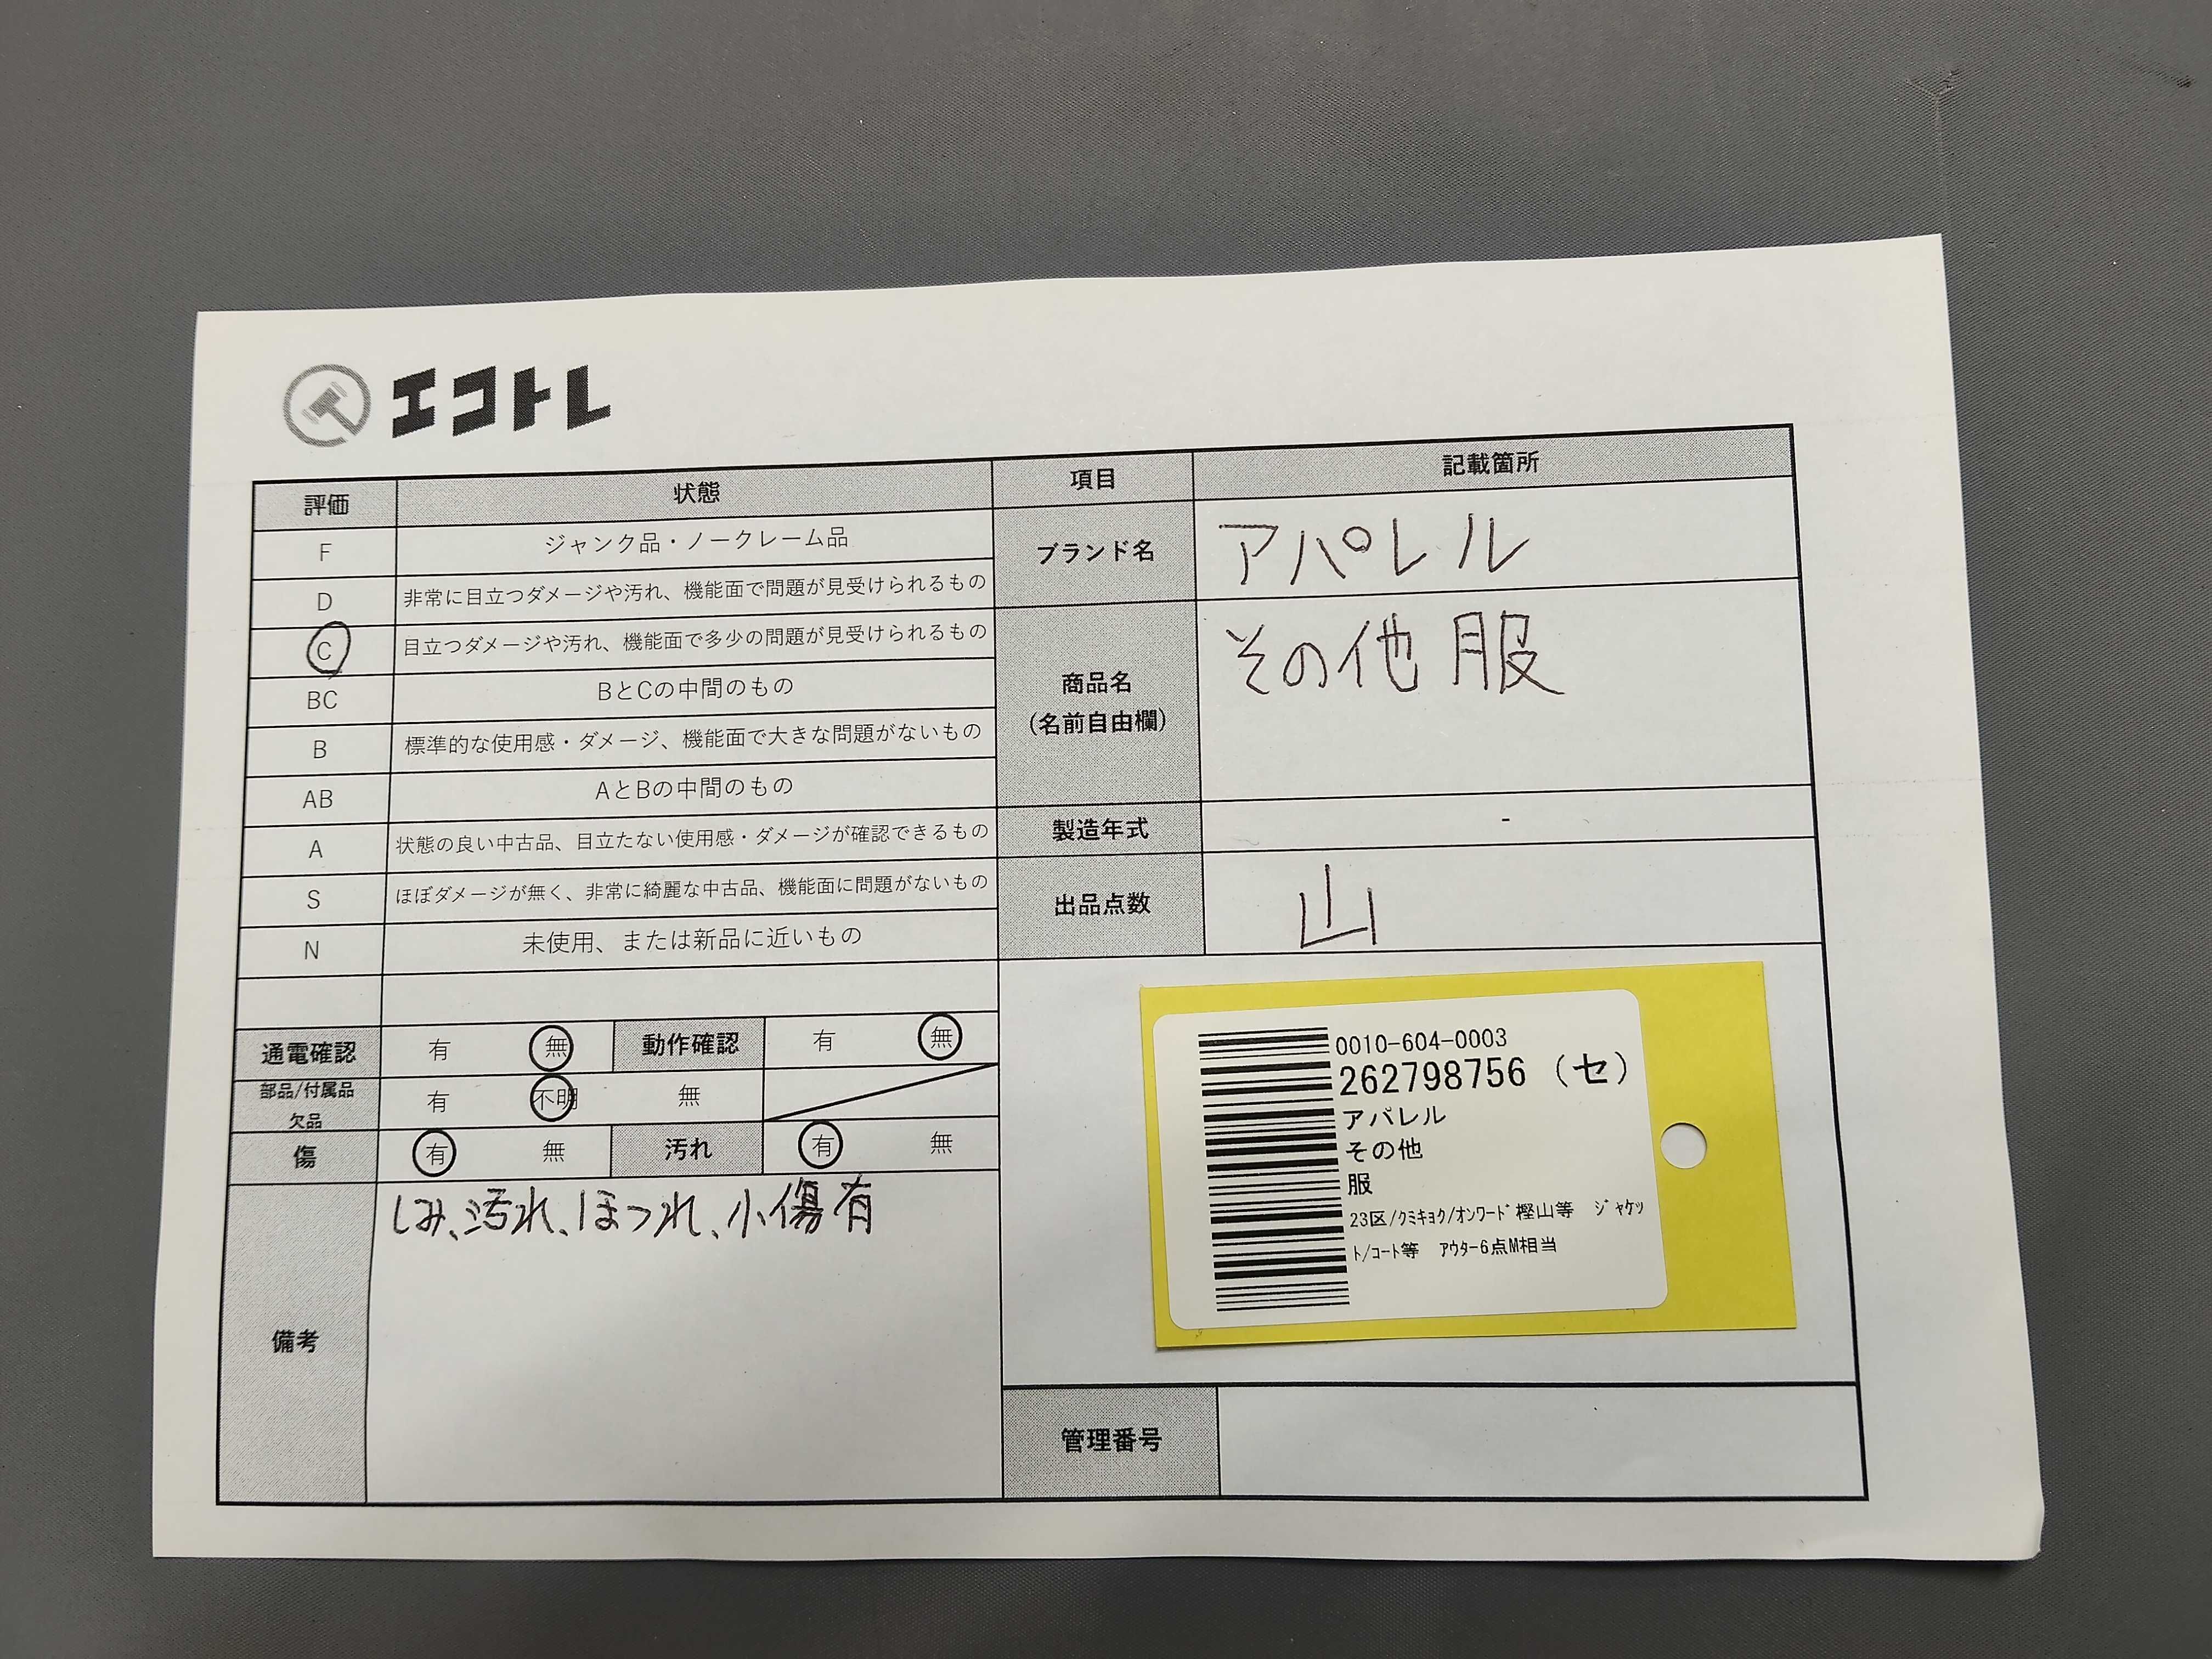 エコトレ
評価 状態 項目 記載箇所
F ジャンク品・ノークレーム品
D 非常に目立つダメージや汚れ、機能面で問題が見受けられるもの
C 目立つダメージや汚れ、機能面で多少の問題が見受けられるもの
BC BとCの中間のもの
B 標準的な使用感・ダメージ、機能面で大きな問題がないもの
AB AとBの中間のもの
A 状態の良い中古品、目立たない使用感・ダメージが確認できるもの
S ほぼダメージが無く、非常に綺麗な中古品、機能面に問題がないもの
N 未使用、または新品に近いもの
ブランド名 アパレル
商品名 その他 服
(名前自由欄)
製造年式 -
出品点数 山
通電確認 有 無 動作確認 有 無
部品/付属品
欠品 有 不明 無
傷 有 無 汚れ 有 無
備考 しみ、汚れ、ほつれ、小傷有
0010-604-0003
262798756 (セ)
アパレル
その他
服
23区/クミキョク/オンワード樫山等 ジャケッ
ト/コート等 アウター6点M相当
管理番号